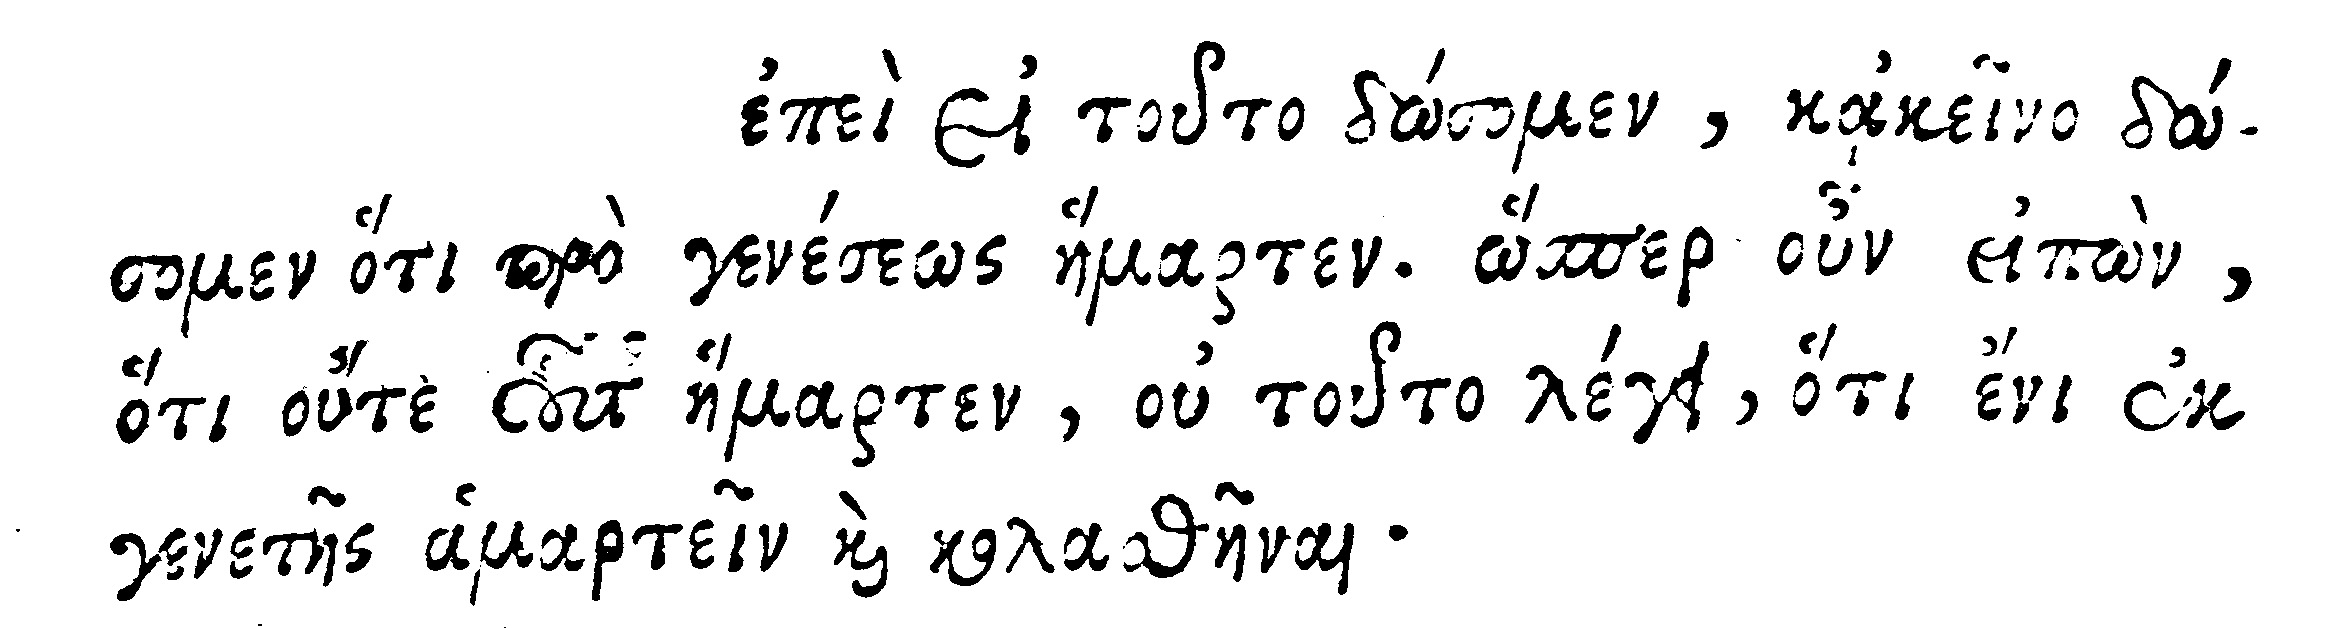 ἐπεὶ εἰ τοῦτο δώσομεν, κἀκεῖνο δώ-
σομεν ὅτι πρὸ γενέσεως ἥμαρτεν. ὥσπερ οὖν εἰπὼν,
ὅτι οὔτὲ οὗτος ἥμαρτεν, οὐ τοῦτο λέγει, ὅτι ἔνι ἐκ
γενετῆς ἁμαρτεῖν καὶ κολασθῆναι.